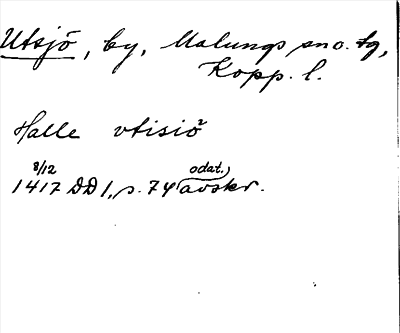 Utsjö, by, Malungs sno. tg,
Kopp. l.
Halle vtisiö²
8/12 odat.)
1417 DD 1, s. 74 avskr.